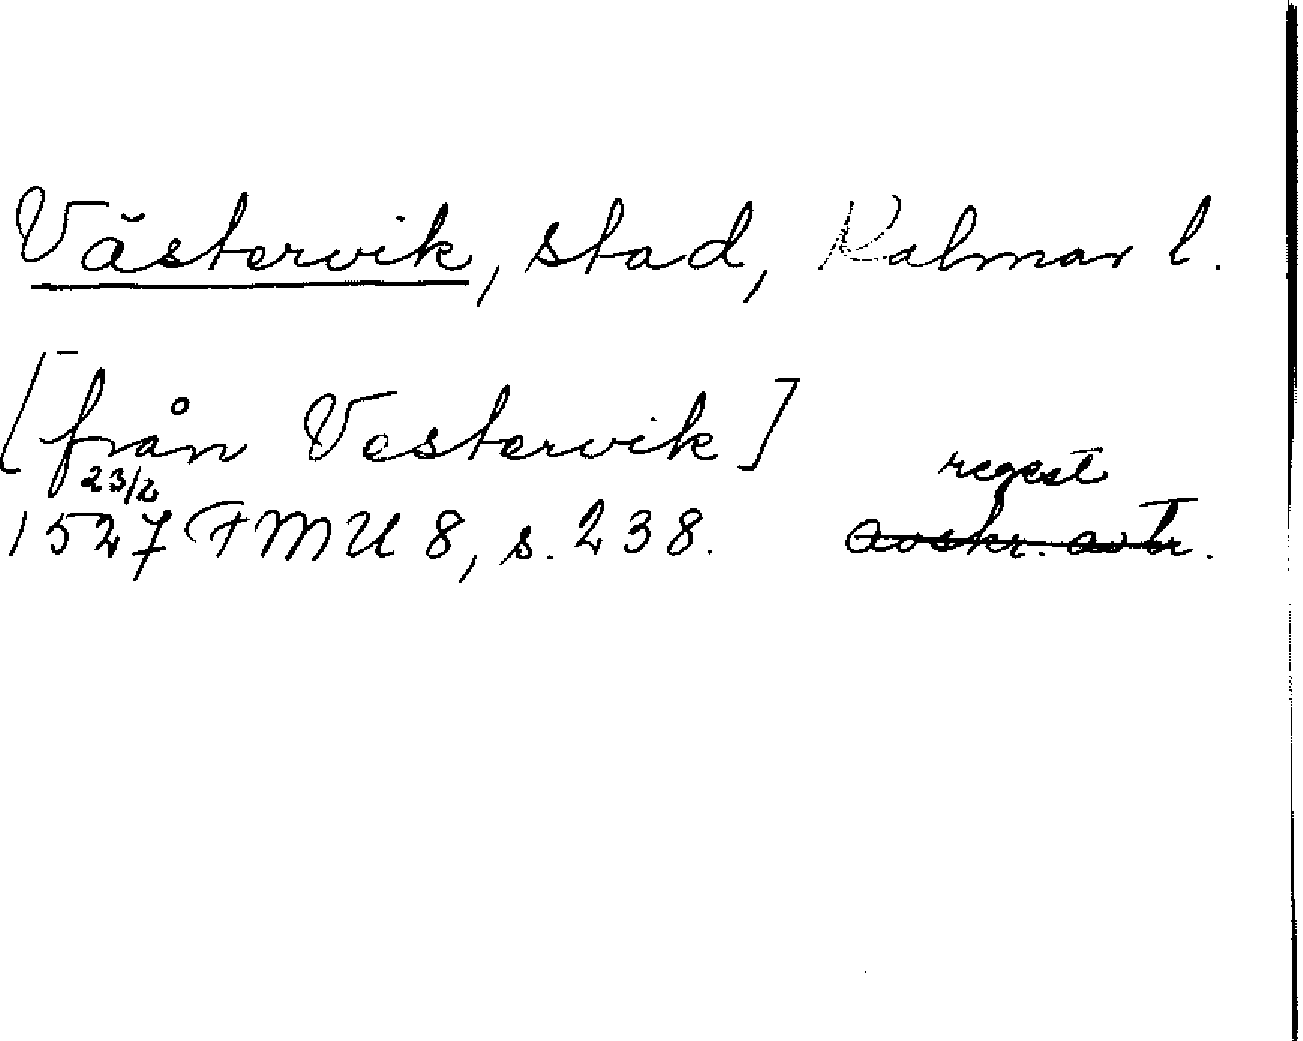 Västervik, stad, Kalmar l.
[från Vestervik]
23/2 regest
1527 FMU 8, s. 238. avskr. av tr.